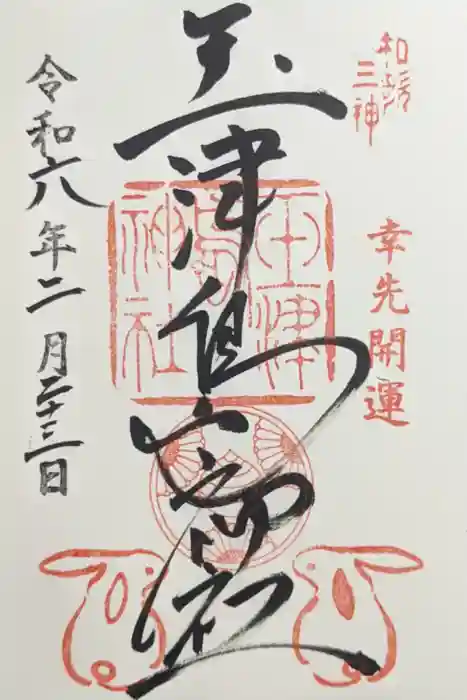 和歌三神
幸先開運
玉津島
玉津島神社
令和六年二月二十三日